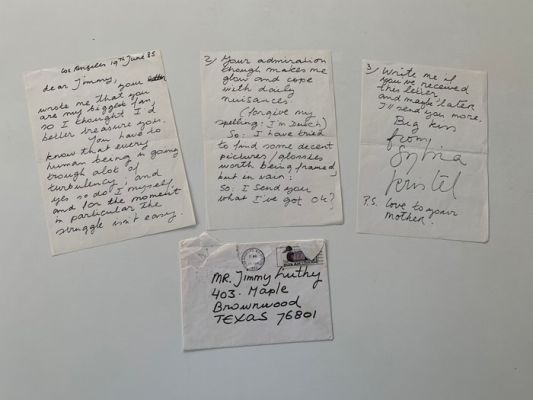 Los Angeles 19th June 85
dear Jimmy,
your letter
wrote me, that you
are my biggest fan,
so I thought I'd
better treasure you.
You have to
know that every
human being is going
trough alot of
turbulency, and
yes so do I myself,
and for the moment
in particular the
struggle isn't easy.
2) Your admiration
though makes me
glow and cope
with daily
nuisances
(forgive my
spelling: I'm Dutch)
So: I have tried
to find some decent
pictures/glossies
worth being framed
but in vain:
So: I send you
what I've got ok?
3) Write me if
you've received
this letter
and maybe later
I'll send you more.
Big kiss
from
Sylvia
Kristel
P.S. Love to your
mother.
MR. Jimmy Luthy
403. Maple
Brownwood
TEXAS 76801